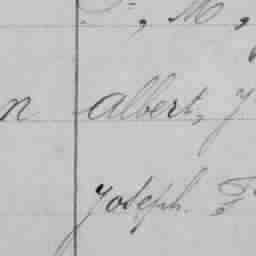 M,
n Albert, J
Joseph. F